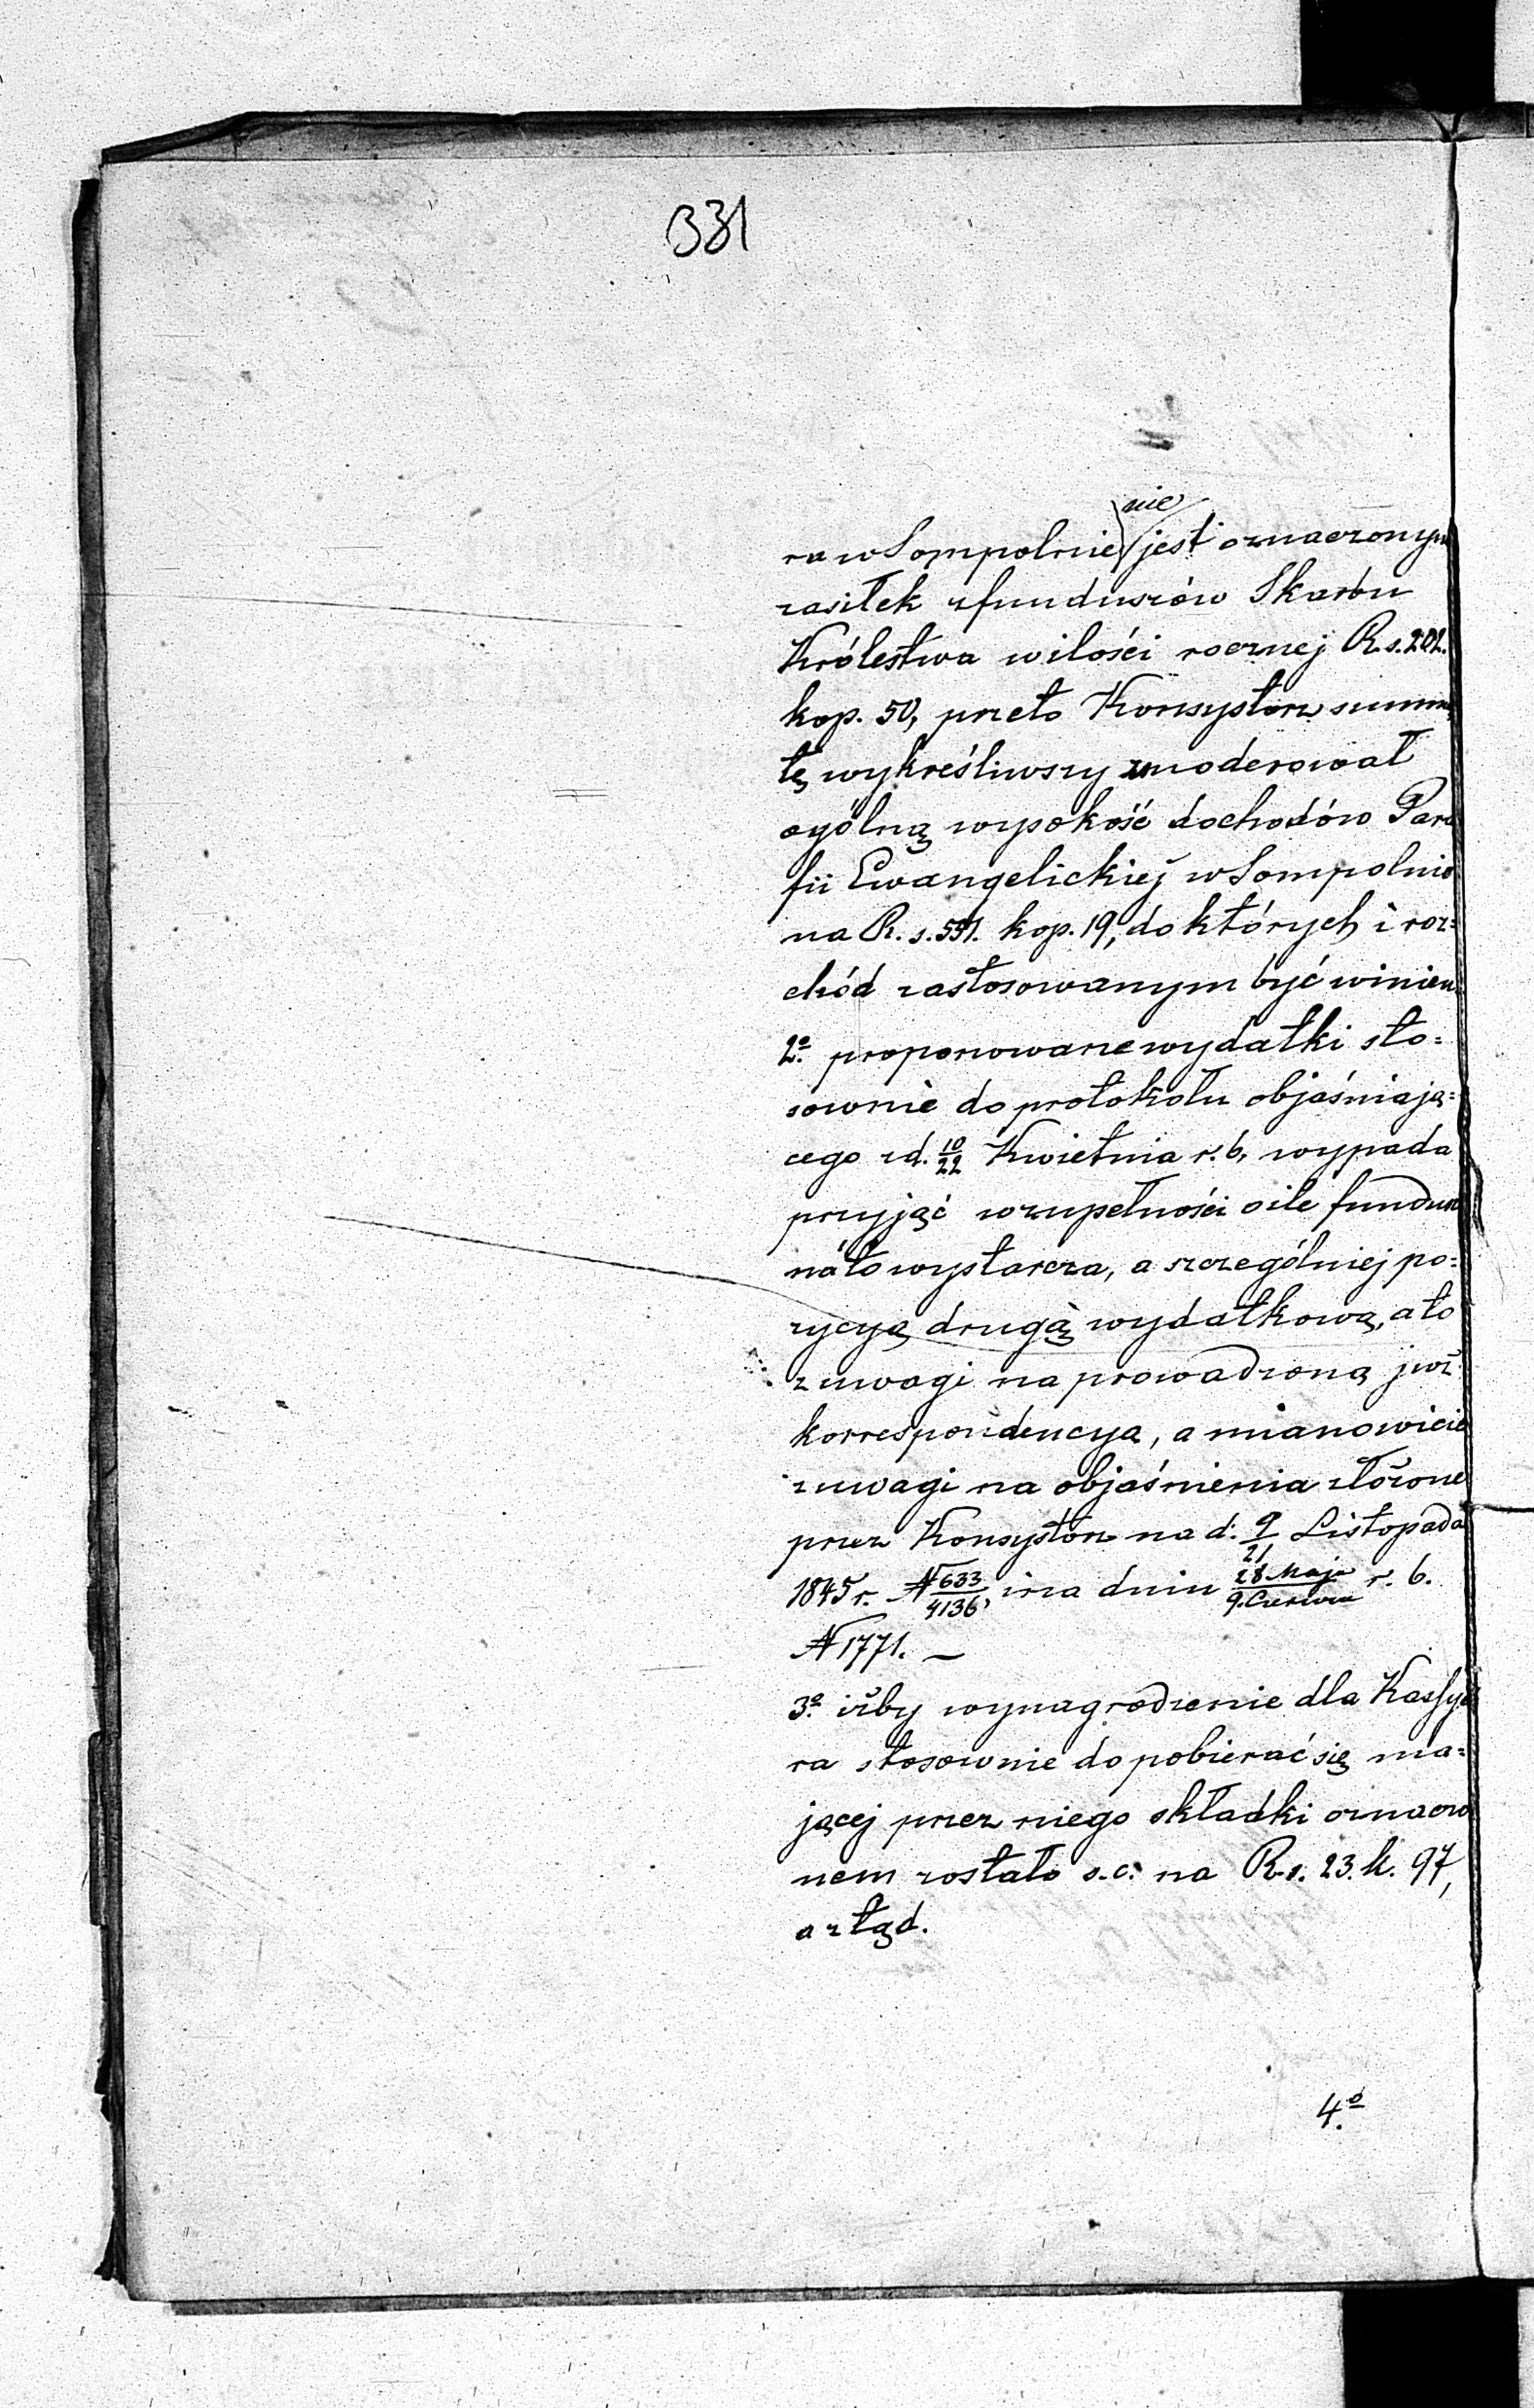 331
nie
ra w Sompolnie jest oznaczonym
zasiłek z funduszów Skarbu
Królestwa w ilości rocznej R.s. 202.
kop. 50, przeto Konsystorz summę
tę wykreśliwszy zmoderował
ogólną wysokość dochodów Para
fii Ewangelickiej w Sompolnie
na R. s. 551. kop. 19, do których i roz=
chód zastosowanym być winien.
2º. proponowane wydatki sto=
sownie do protokółu objaśniają=
cego z d. 10/22 Kwietnia r. b. wypada
przyjąć w zupełności o ile fundusz
na to wystarcza, a szczególniej po=
zycyą drugą wydatkową, a to
z uwagi na prowadzoną już
korrespondencya, a mianowicie
z uwagi na objaśnienia złożone
przez Konsystorz na d. 9/21 Listopada
1845 r. N 633/4136, i na dniu 28 Maja/9. Czerwca r. b.
N 1771. —
3º. iżby wynagrodzenie dla Kassye
ra stosownie do pobierać się ma=
jącej przez niego składki oznaczo
nem zostało s. c. na R. s. 23. k. 97,
a ztąd.
4º.